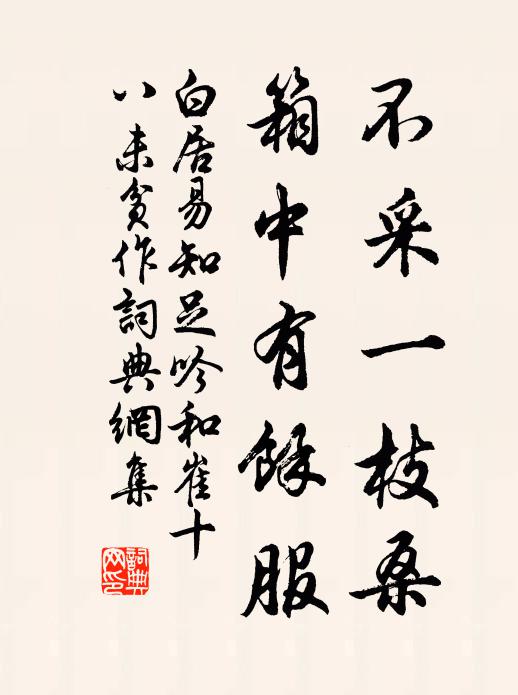 不采一枝桑
箱中有餘服
白居易知足吟和崔十
八未貧作詞典網集
詞典
网印